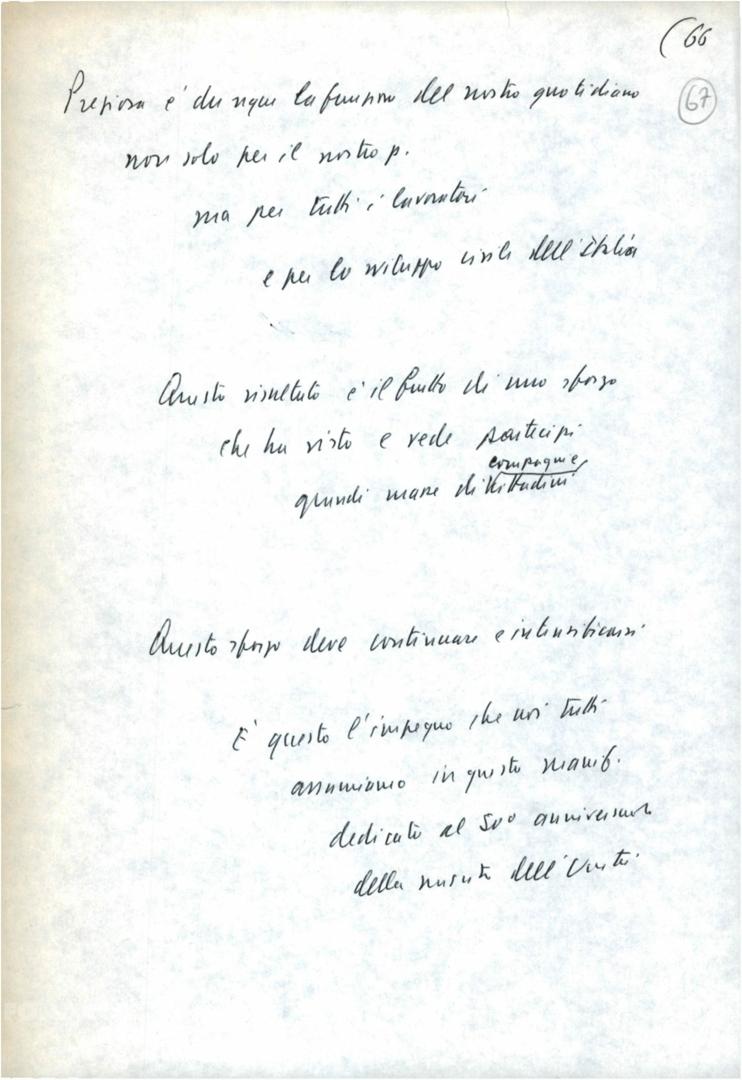 (66
67
Preziosa è dunque la funzione del nostro quotidiano
non solo per il nostro p.
ma per tutti i lavoratori
e per lo sviluppo civile dell'Italia
Questo risultato è il frutto di uno sforzo
che ha visto e vede partecipi
compagni e
grandi masse di cittadini
Questo sforzo deve continuare e intensificarsi
E' questo l'impegno che noi tutti
assumiamo in questa manif.
dedicata al 50º anniversario
della nascita dell'Unità